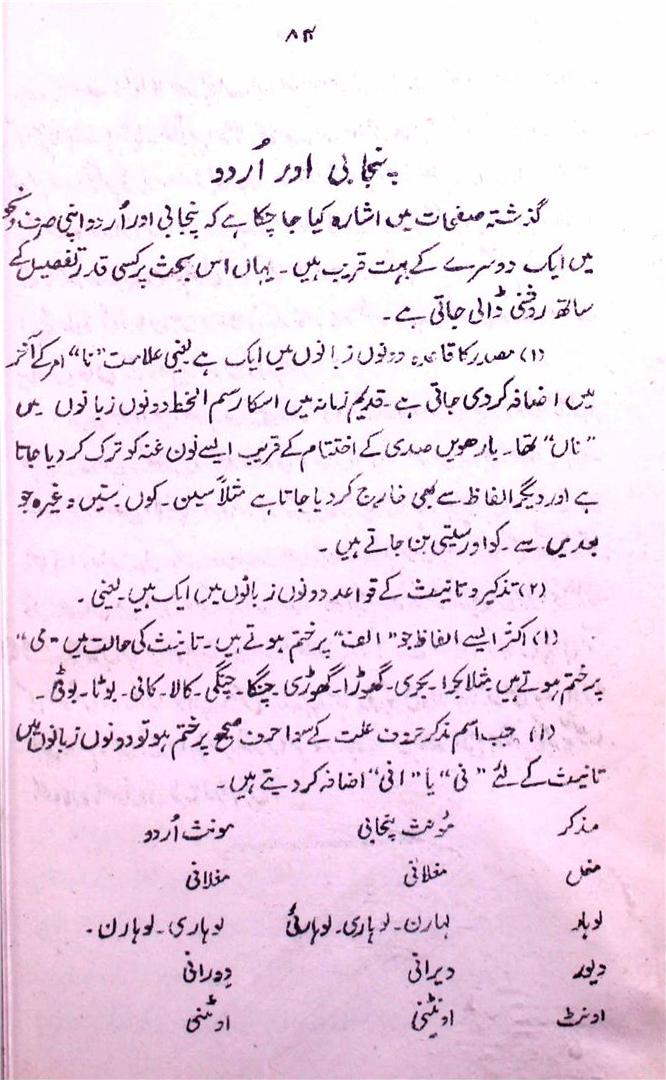 ۸۴
پنجابی اور اُردو
گذشتہ صفحات میں اشارہ کیا جا چکا ہے کہ پنجابی اور اُردو اپنی صرف و نحو
میں ایک دوسرے کے بہت قریب ہیں۔ یہاں اس بحث پر کسی قدر تفصیل کے
ساتھ روشنی ڈالی جاتی ہے۔
(۱) مصدر کا قاعدہ دونوں زبانوں میں ایک ہے یعنی علامت "نا" امر کے آخر
میں اضافہ کر دی جاتی ہے۔ قدیم زمانہ میں اسکا رسم الخط دونوں زبانوں میں
"ناں" تھا۔ بارھویں صدی کے اختتام کے قریب ایسے نون غنہ کو ترک کر دیا جاتا
ہے اور دیگر الفاظ سے بھی خارج کر دیا جاتا ہے مثلاً سین۔ کوں ستیں وغیرہ جو
بعد میں سے۔ کو اور سیتی بن جاتے ہیں۔
(۲) تذکیر و تانیث کے قواعد دونوں زبانوں میں ایک ہیں۔ یعنی۔
(۱) اکثر ایسے الفاظ جو "الف" پر ختم ہوتے ہیں۔ تانیث کی حالت میں "ی"
پر ختم ہوتے ہیں مثلا بکرا۔ بکری۔ گھوڑا۔ گھوڑی چنگا۔ چنگی۔ کالا۔ کالی۔ بوٹا۔ بوٹی۔
(۱) جب اسم مذکر حروف علت کے سوا حرف صحیح پر ختم ہو تو دونوں زبانوں میں
تانیث کے لئے "نی" یا "انی" اضافہ کر دیتے ہیں۔
مذکر مؤنث پنجابی مونث اُردو
مغل مغلانی مغلانی
لوہار لہارن۔ لوہاری۔ لوہارنی لوہاری۔ لوہارن۔
دیور دیرانی دورانی
اونٹ اونٹنی اونٹنی